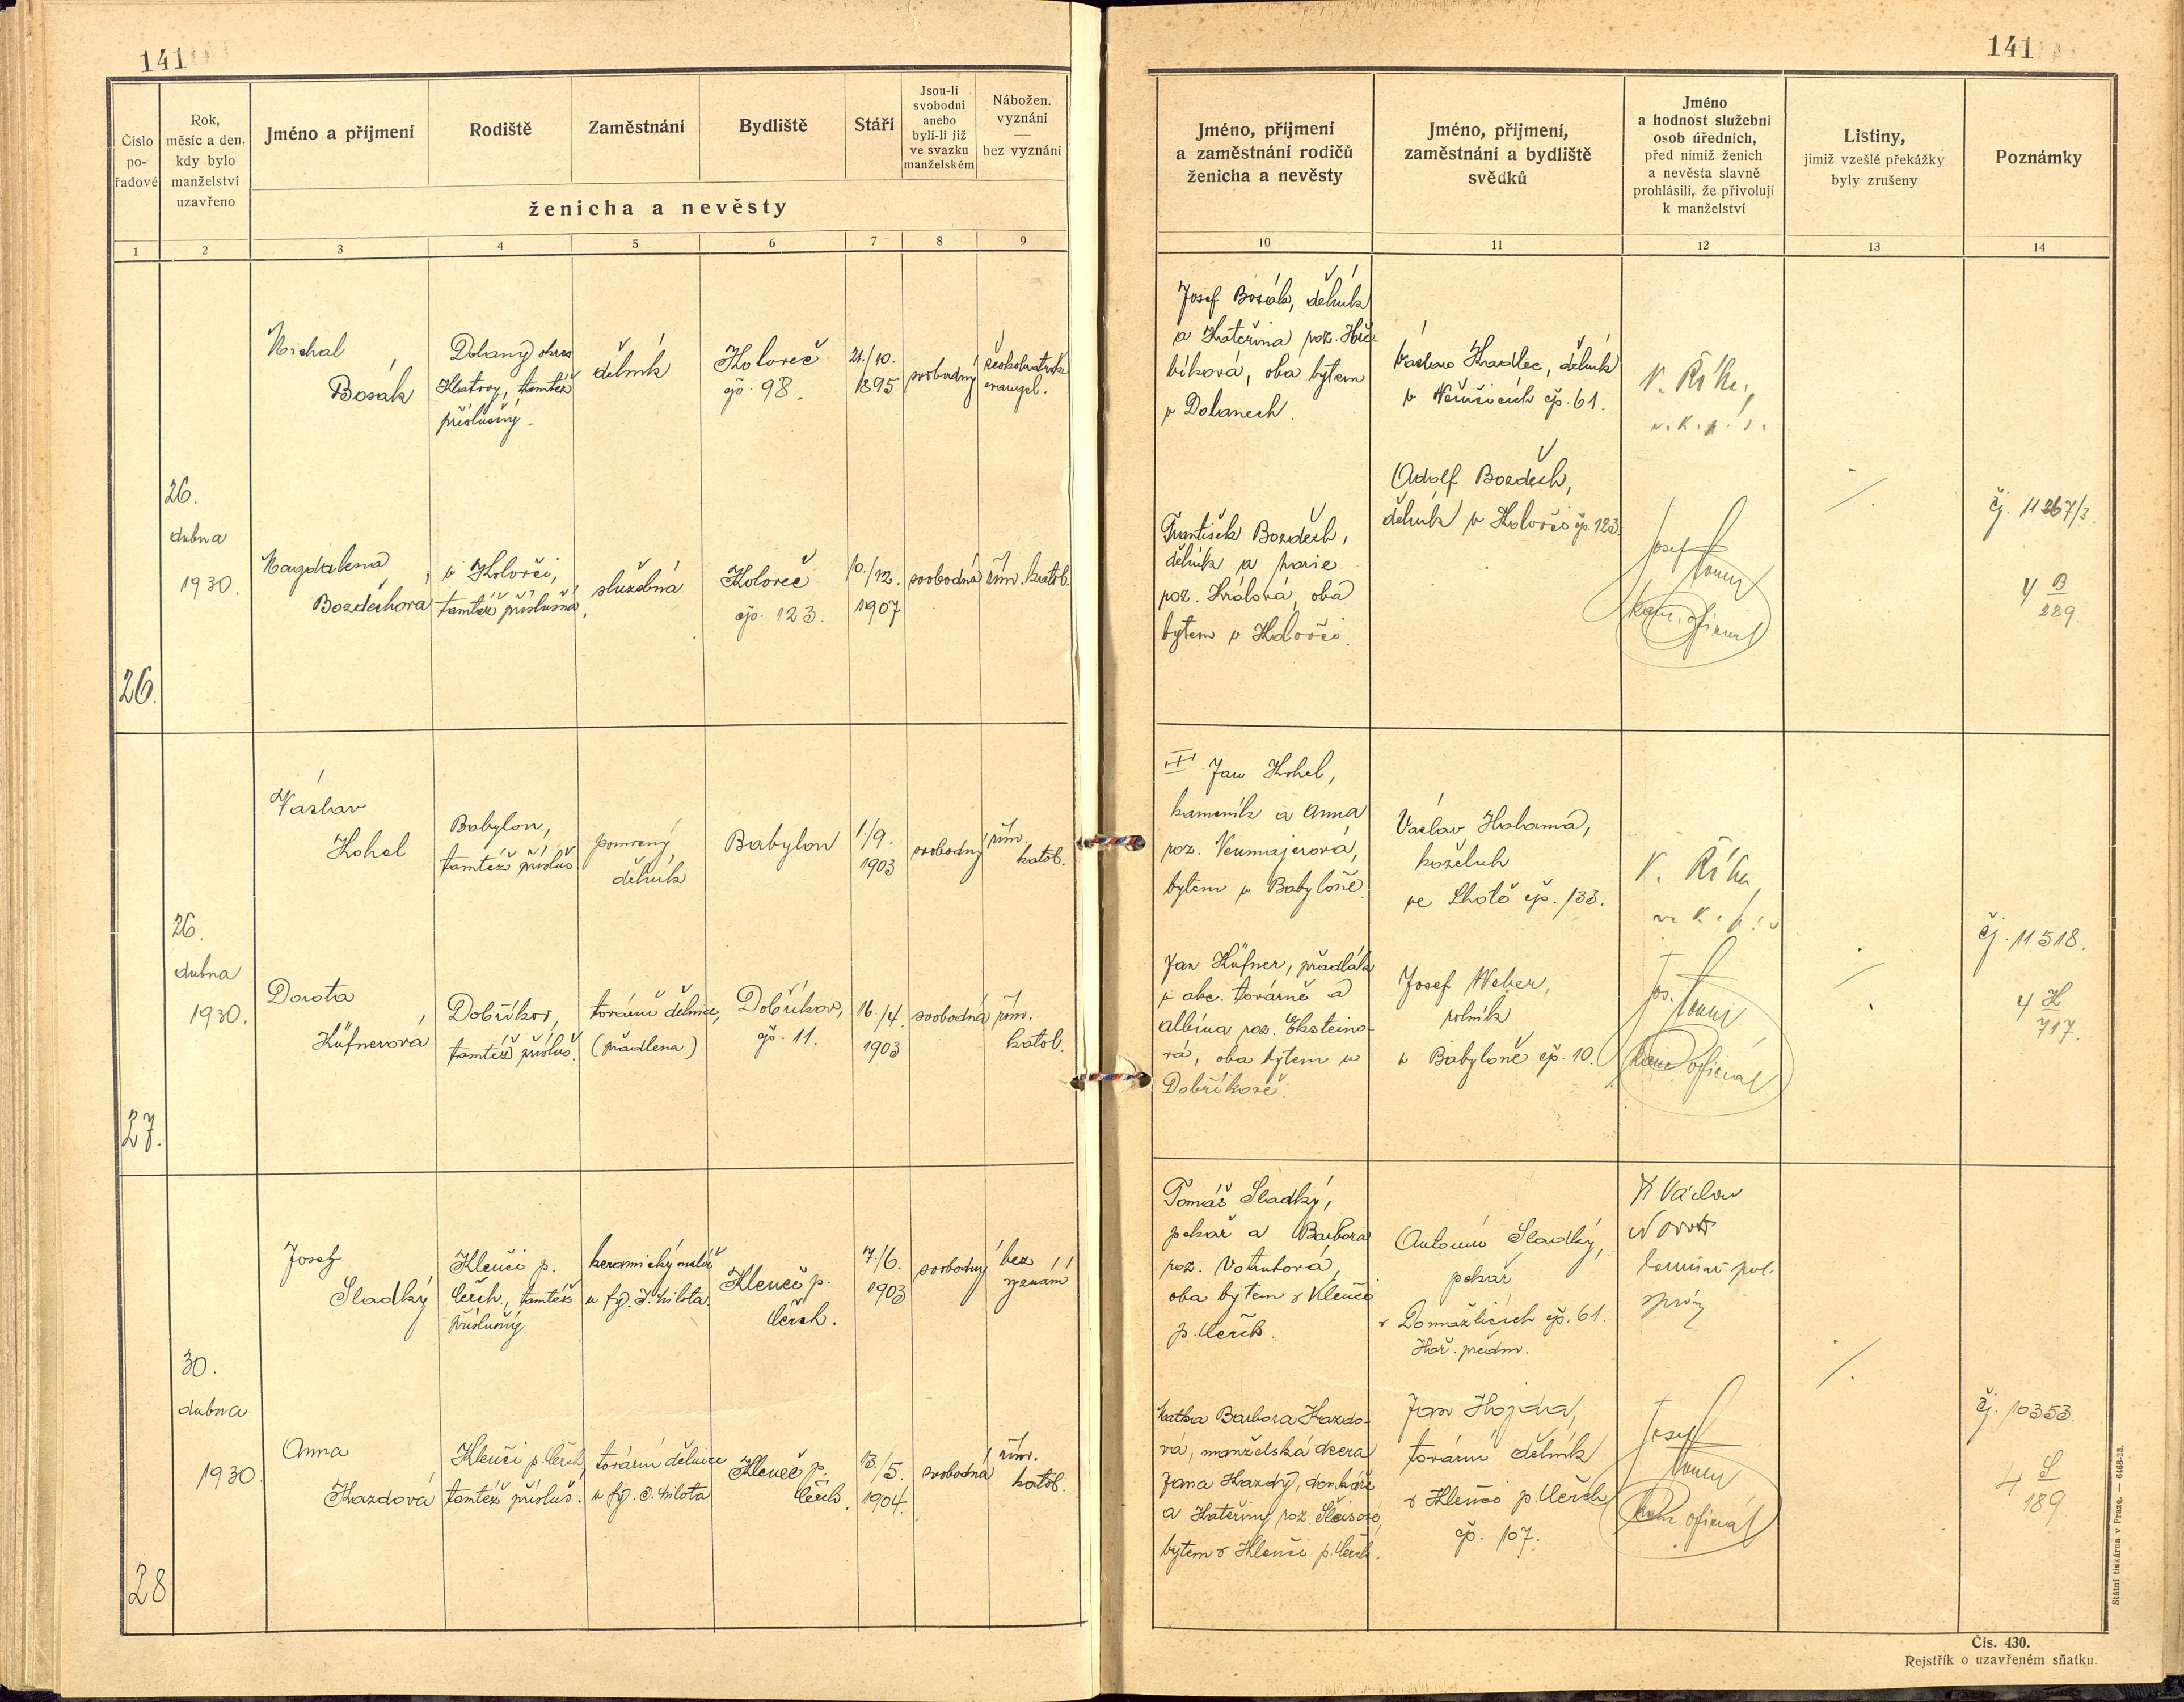 141
141
Číslo
po-
řadové
Rok,
měsíc a den,
kdy bylo
manželství
uzavřeno
Jméno a příjmení
Rodiště
Zaměstnání
Bydliště
Stáří
Jsou-li
svobodni
anebo
byli-li již
ve svazku
manželském
Nábožen.
vyznání
—
bez vyznání
ženicha a nevěsty
Jméno, příjmení
a zaměstnání rodičů
ženicha a nevěsty
Jméno, příjmení,
zaměstnání a bydliště
svědků
Jméno
a hodnost služební
osob úředních,
před nimiž ženich
a nevěsta slavně
prohlásili, že přivolují
k manželství
Listiny,
jimiž vzešlé překážky
byly zrušeny
Poznámky
1 2 3 4 5 6 7 8 9
10 11 12 13 14
26.
26.
dubna
1930.
Michal
Bosák
Dolany okres
Klatovy, tamtéž
příslušný.
dělník
Koloveč
čp. 98.
21./10.
1895
svobodný
českobratrské
evangel.
Josef Bosák, dělník
a Kateřina roz.
bíková, oba bytem
v Dolanech.
Václav Hradlec, dělník
v čp. 61.
V. Říha,
v. k. p. s.
Magdalena
Bozděchova
v Kolovči,
tamtéž příslušná
služebná
Koloveč
čp. 123.
10./12.
1907
svobodná
řím. katol.
František Bozděch,
dělník a Marie
roz. Králová, oba
bytem v Kolovči.
Adolf Bozděch,
dělník v Kolovči čp. 123
Josef
kanc. oficiál
čj. 11267/3.
4 B
289.
27.
26.
dubna
1930.
Václav
Kohel
Babylon,
tamtéž přísluš.
pomocný
dělník
Babylon
1./9.
1903
svobodný
řím.
katol.
Jan Kohel,
kameník a Anna
roz. Neumajerová,
bytem v Babyloně.
Václav Hahama,
koželuh
ve Lhotě čp. 133.
V. Říha
v. k. p. s
Dorota
Küfnerová
Dobříkov,
tamtéž přísluš.
tovární dělnice,
(přadlena)
Dobříkov,
čp. 11.
16./4.
1903
svobodná
řím.
katol.
Jan Küfner, přadlák
v abc. továrně a
Albína roz. Eksteino-
vá, oba bytem v
Dobříkově.
Josef Weber,
rolník
v Babyloně čp. 10.
Jos.
kanc. oficiál
čj. 11518.
4 K
717.
28
30.
dubna
1930.
Josef
Sladký
Klenčí p.
Čerch., tamtéž
příslušný
keramický malíř
u fy. J. Milota.
Klenčí p.
Čerch.
7./6.
1903
svobodný
bez
vyznání
Tomáš Sladký,
pekař a Barbora
roz. Votrubová,
oba bytem v Klenčí
p. Čerch.
Antonín Sladký,
pekař
v Domažlicích čp. 61.
Hoř. předm.
Václav
komisař pol.
správy
Anna
Kazdová
Klenčí p. Čerch.
tamtéž přísluš.
tovární dělnice
u fy. J. Milota
Klenčí p.
Čerch.
13./5.
1904.
svobodná
řím.
katol.
Matka Barbora Kazdo-
vá, manželská dcera
Jana Kazdy, domkáře
a Kateřiny roz.
bytem v Klenčí p. Čerch.
Jan Hojda,
tovární dělník
v Klenčí p. Čerch
čp. 107.
Josef
kanc. oficiál
čj. 10353.
4 S
189
Státní tiskárna v Praze. — 6468-28.
Čís. 430.
Rejstřík o uzavřeném sňatku.